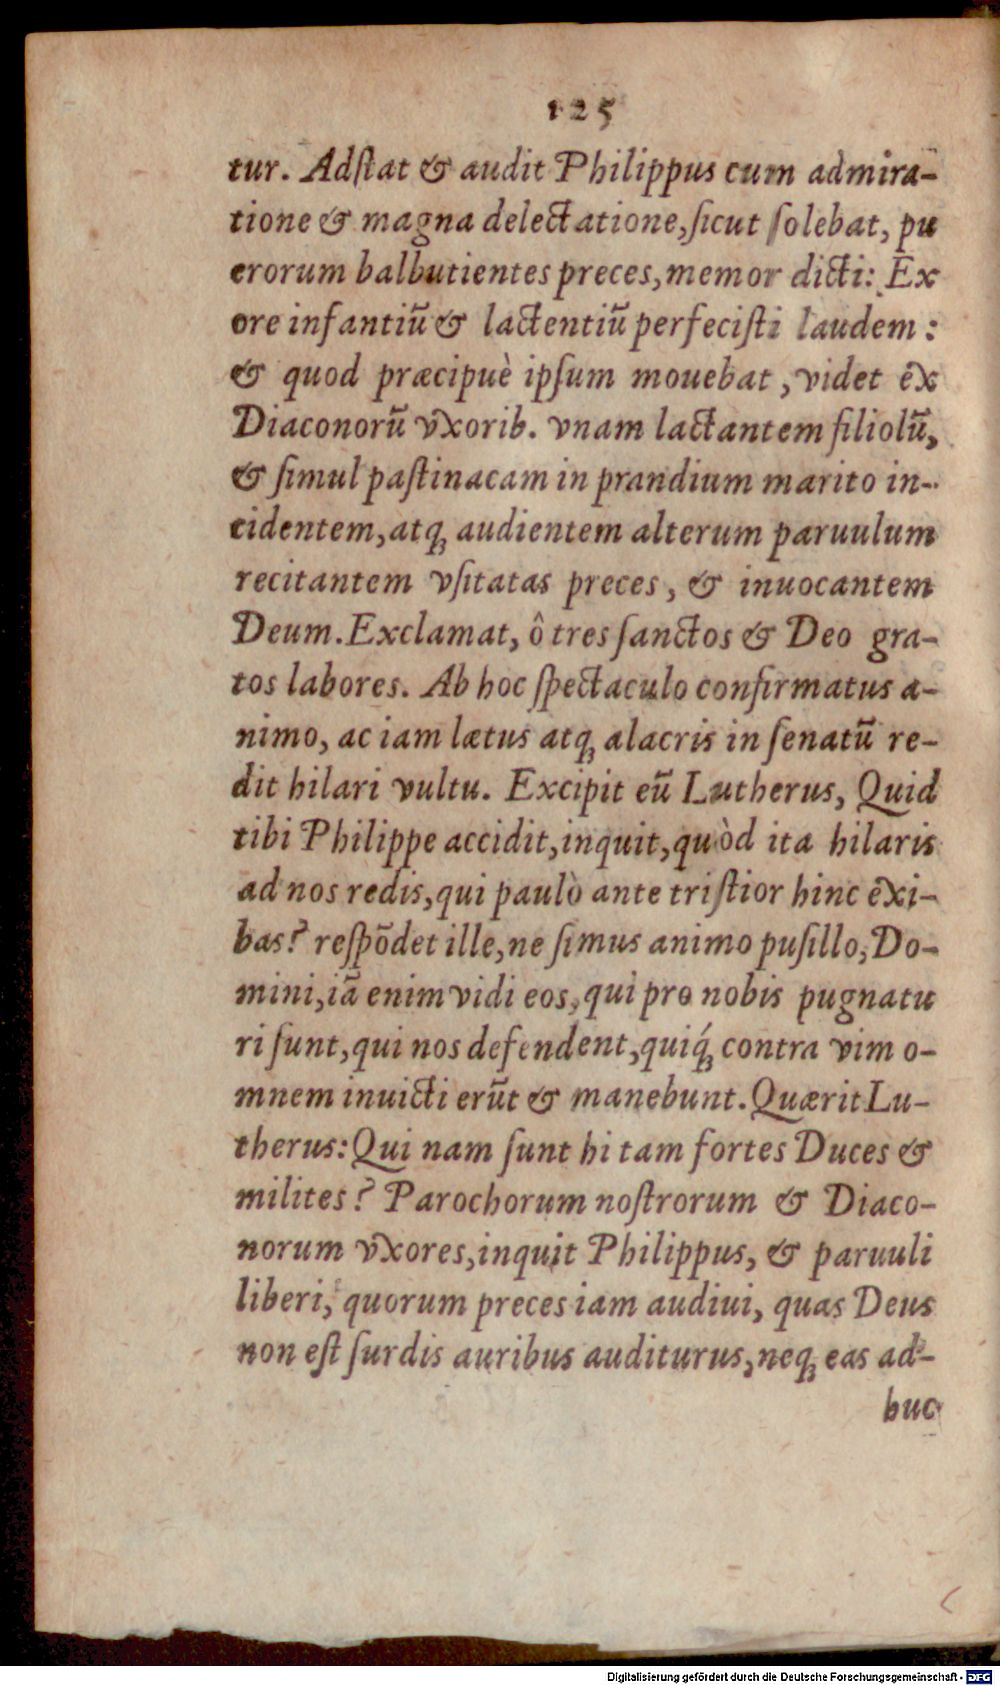 125
tur. Adſtat & audit Philippus cum admira-
tione & magna delectatione, ſicut ſolebat, pu
erorum balbutientes preces, memor dicti: Ex
ore infantiū & lactentiū perfeciſti laudem:
& quod præcipuè ipſum mouebat, videt ex
Diaconorū vxorib. vnam lactantem filiolū,
& ſimul paſtinacam in prandium marito in-
cidentem, atq; audientem alterum paruulum
recitantem vſitatas preces, & inuocantem
Deum. Exclamat, ô tres ſanctos & Deo gra-
tos labores. Ab hoc ſpectaculo confirmatus a-
nimo, ac iam lætus atq; alacris in ſenatū re-
dit hilari vultu. Excipit eū Lutherus, Quid
tibi Philippe accidit, inquit, quòd ita hilaris
ad nos redis, qui paulò ante triſtior hinc exi-
bas? reſpōdet ille, ne ſimus animo puſillo, Do-
mini, iā enim vidi eos, qui pro nobis pugnatu
ri ſunt, qui nos defendent, quiq́; contra vim o-
mnem inuicti erūt & manebunt. Quærit Lu-
therus: Qui nam ſunt hi tam fortes Duces &
milites? Parochorum noſtrorum & Diaco-
norum vxores, inquit Philippus, & paruuli
liberi, quorum preces iam audiui, quas Deus
non eſt ſurdis auribus auditurus, neq; eas ad-
huc
Digitalisierung gefördert durch die Deutsche Forschungsgemeinschaft - DFG